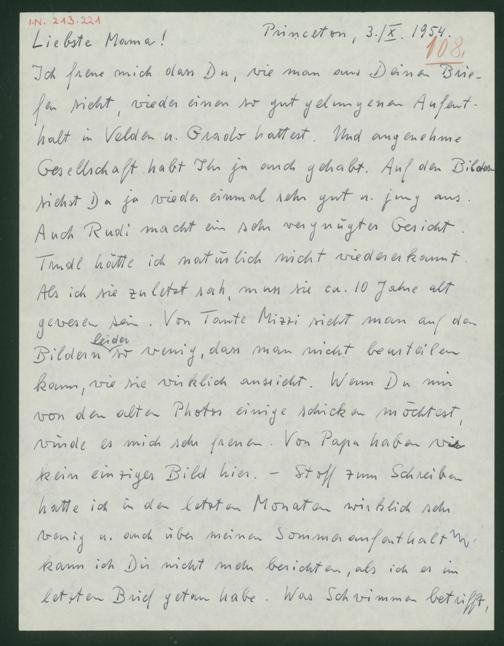 I.N. 213.221
Princeton, 3./X. 1954.
108.
Liebste Mama!
Ich freue mich dass Du, wie man aus Deinen Brie-
fen sieht, wieder einen so gut gelungenen Aufent-
halt in Velden u. Grado hattest. Und angenehme
Gesellschaft habt Ihr ja auch gehabt. Auf den Bildern
siehst Du ja wieder einmal sehr gut u. jung aus.
Auch Rudi macht ein sehr vergnügtes Gesicht.
Trude hätte ich natürlich nicht wiedererkannt.
Als ich sie zuletzt sah, muss sie ca. 10 Jahre alt
gewesen sein. Von Tante Mizzi sieht man auf den
Bildern leider so wenig, dass man nicht beurteilen
kann, wie sie wirklich aussieht. Wenn Du mir
von den alten Photos einige schicken möchtest,
würde es mich sehr freuen. Von Papa haben wir
kein einziges Bild hier. – Stoff zum Schreiben
hatte ich in den letzten Monaten wirklich sehr
wenig u. auch über meinen Sommeraufenthalt
kann ich Dir nicht mehr berichten, als ich es im
letzten Brief getan habe. Was Schwimmen betrifft,